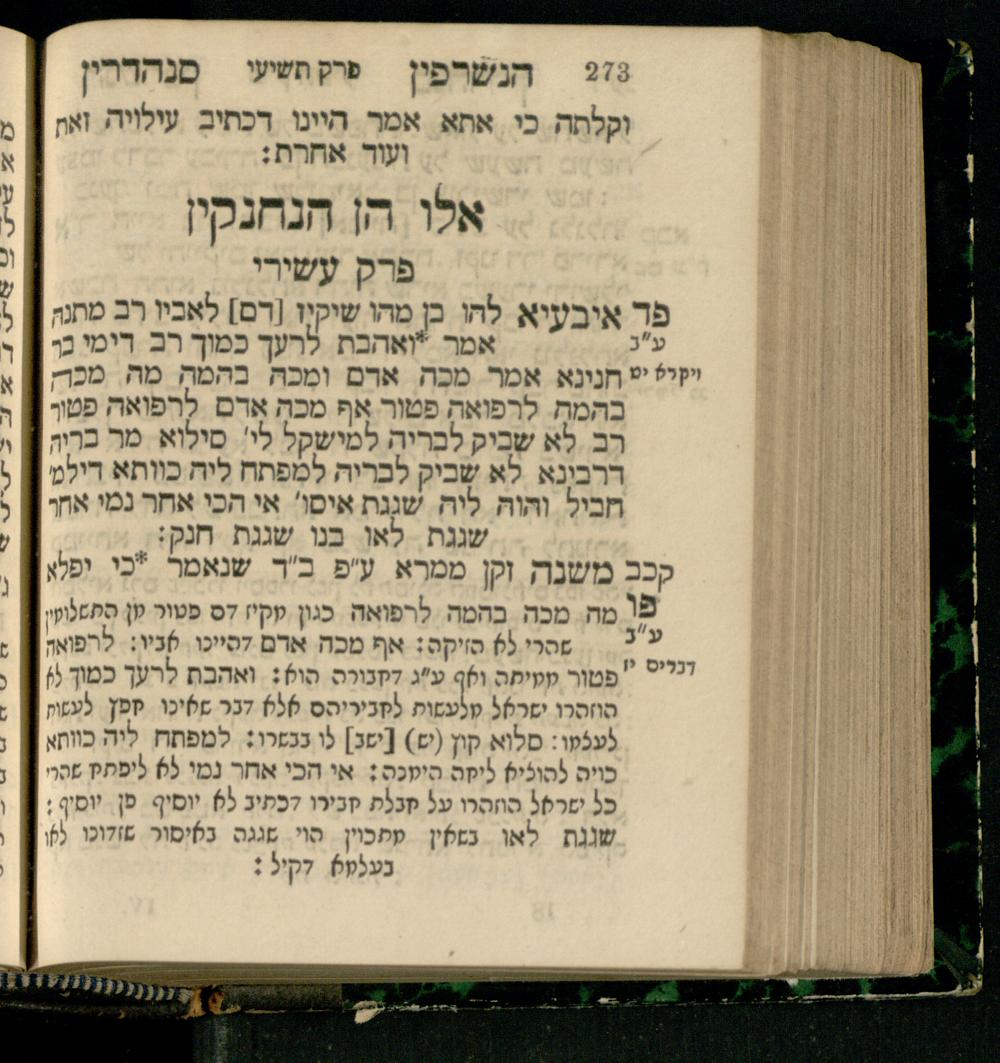 273 הנשרפין פרק תשיעי סנהדרין
וקלתה כי אתא אמר היינו דכתיב עילויה זאת
ועוד אחרת:
אלו הן הנחנקין
פרק עשירי
פד איבעיא להו בן מהו שיקיז [דם] לאביו רב מתנה
ע״ב אמר *ואהבת לרעך כמוך רב דימי בר
ויקרא יט חנינא אמר מכה אדם ומכה בהמה מה מכה
בהמה לרפואה פטור אף מכה אדם לרפואה פטור
רב לא שביק לבריה למישקל לי׳ סילוא מר בריה
דרבינא לא שביק לבריה למפתח ליה כוותא דילמ׳
חביל והוה ליה שגגת איסו׳ אי הכי אחר נמי אחר
שגגת לאו בנו שגגת חנק:
קכב משנה זקן ממרא ע״פ ב״ד שנאמר *כי יפלא
פו מה מכה בהמה לרפואה כגון מקיז דם פטור מן התשלומין
ע״ב שהרי לא הזיקה: אף מכה אדם דהיינו אביו: לרפואה
דברים יז פטור ממיתה ואף ע״ג דחבורה הוא: ואהבת לרעך כמוך לא
הוזהרו ישראל מלעשות לחביריהם אלא דבר שאינו חפץ לעשות
לעצמו: סלוא קוץ (יש) [ישב] לו בבשרו: למפתח ליה כוותא
כויה להוציא ליחה הימנה: אי הכי אחר נמי לא ליפתח שהרי
כל ישראל הוזהרו על חבלת חבירו דכתיב לא יוסיף פן יוסיף:
שגגת לאו בשאין מתכוין הוי שגגה באיסור שזדונו לאו
בעלמא דקיל: